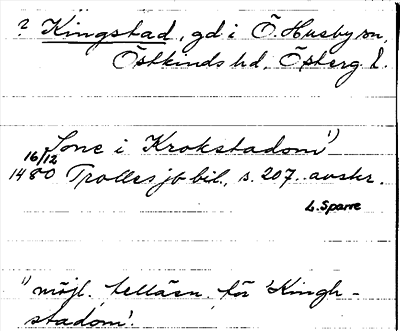 ? Kingstad, gd i Ö. Husby sn,
Östkinds hd, Östergl.
Jone i Krokstadom¹)
16/12
1480 Trollesjö bil., s. 207. avskr.
L. Sparre
¹) möjl. felläsn. för 'Kingh-
stadom'.